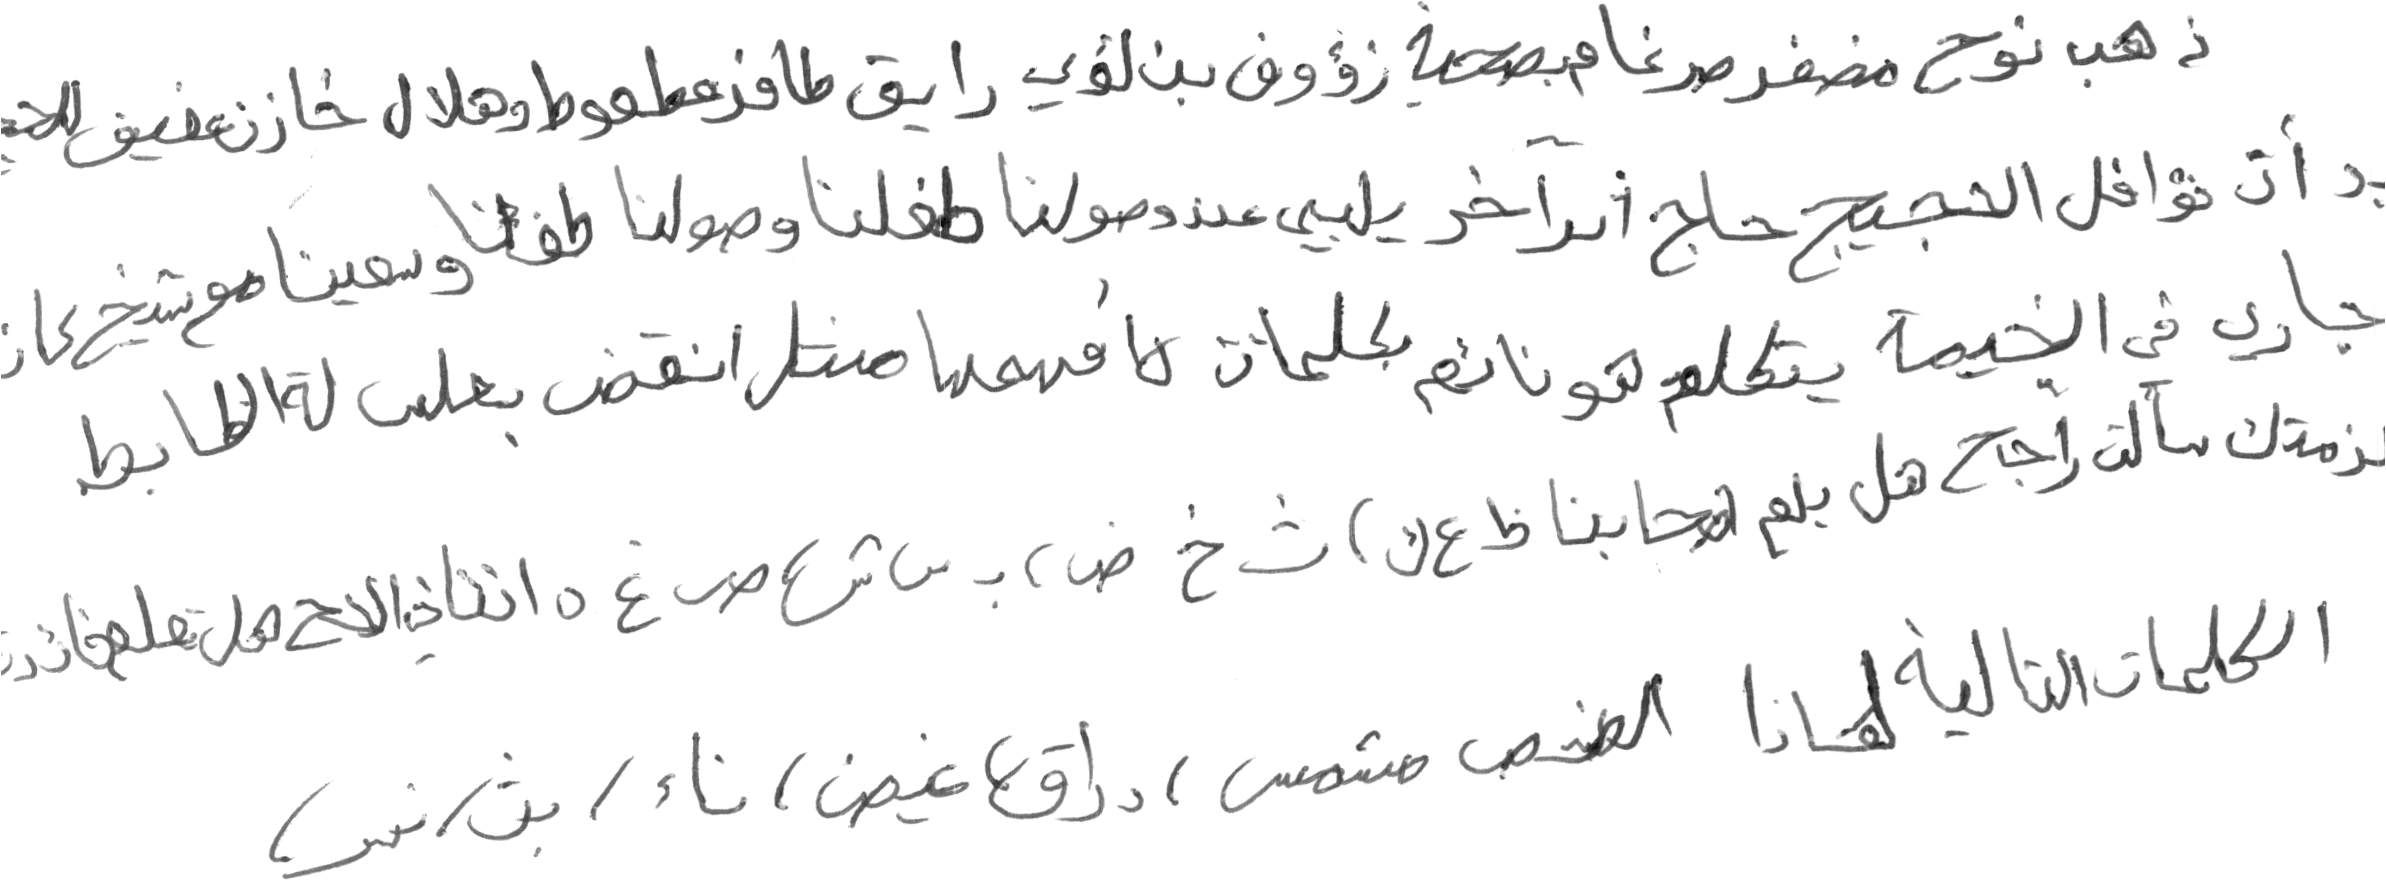 ذهب نوح مضفر ضرغام بصحبة رؤوف بن لؤي رايق ظافر عطعوط وهلال خازن عفيق للحج
بد أن نوافل الحجيج حاج أر آخر يلبي عند وصولنا طفلنا وصولنا طفنا وسعينا مع شيخ كان
جاري في الخيمة يتكلم نائم بكلمات لا أفهمها مثل انقض بعلب لة الظابط
لذمتك سألت راجح هل يلم احجابنا ظ ع ك ، ث خ ض ، ب س ش ع ص غ ه انقاذ الاحج هل تعلم
الكلمات التالية لهذا الشخص مشمس ، راق ، غيض ، ناء ، بث ،